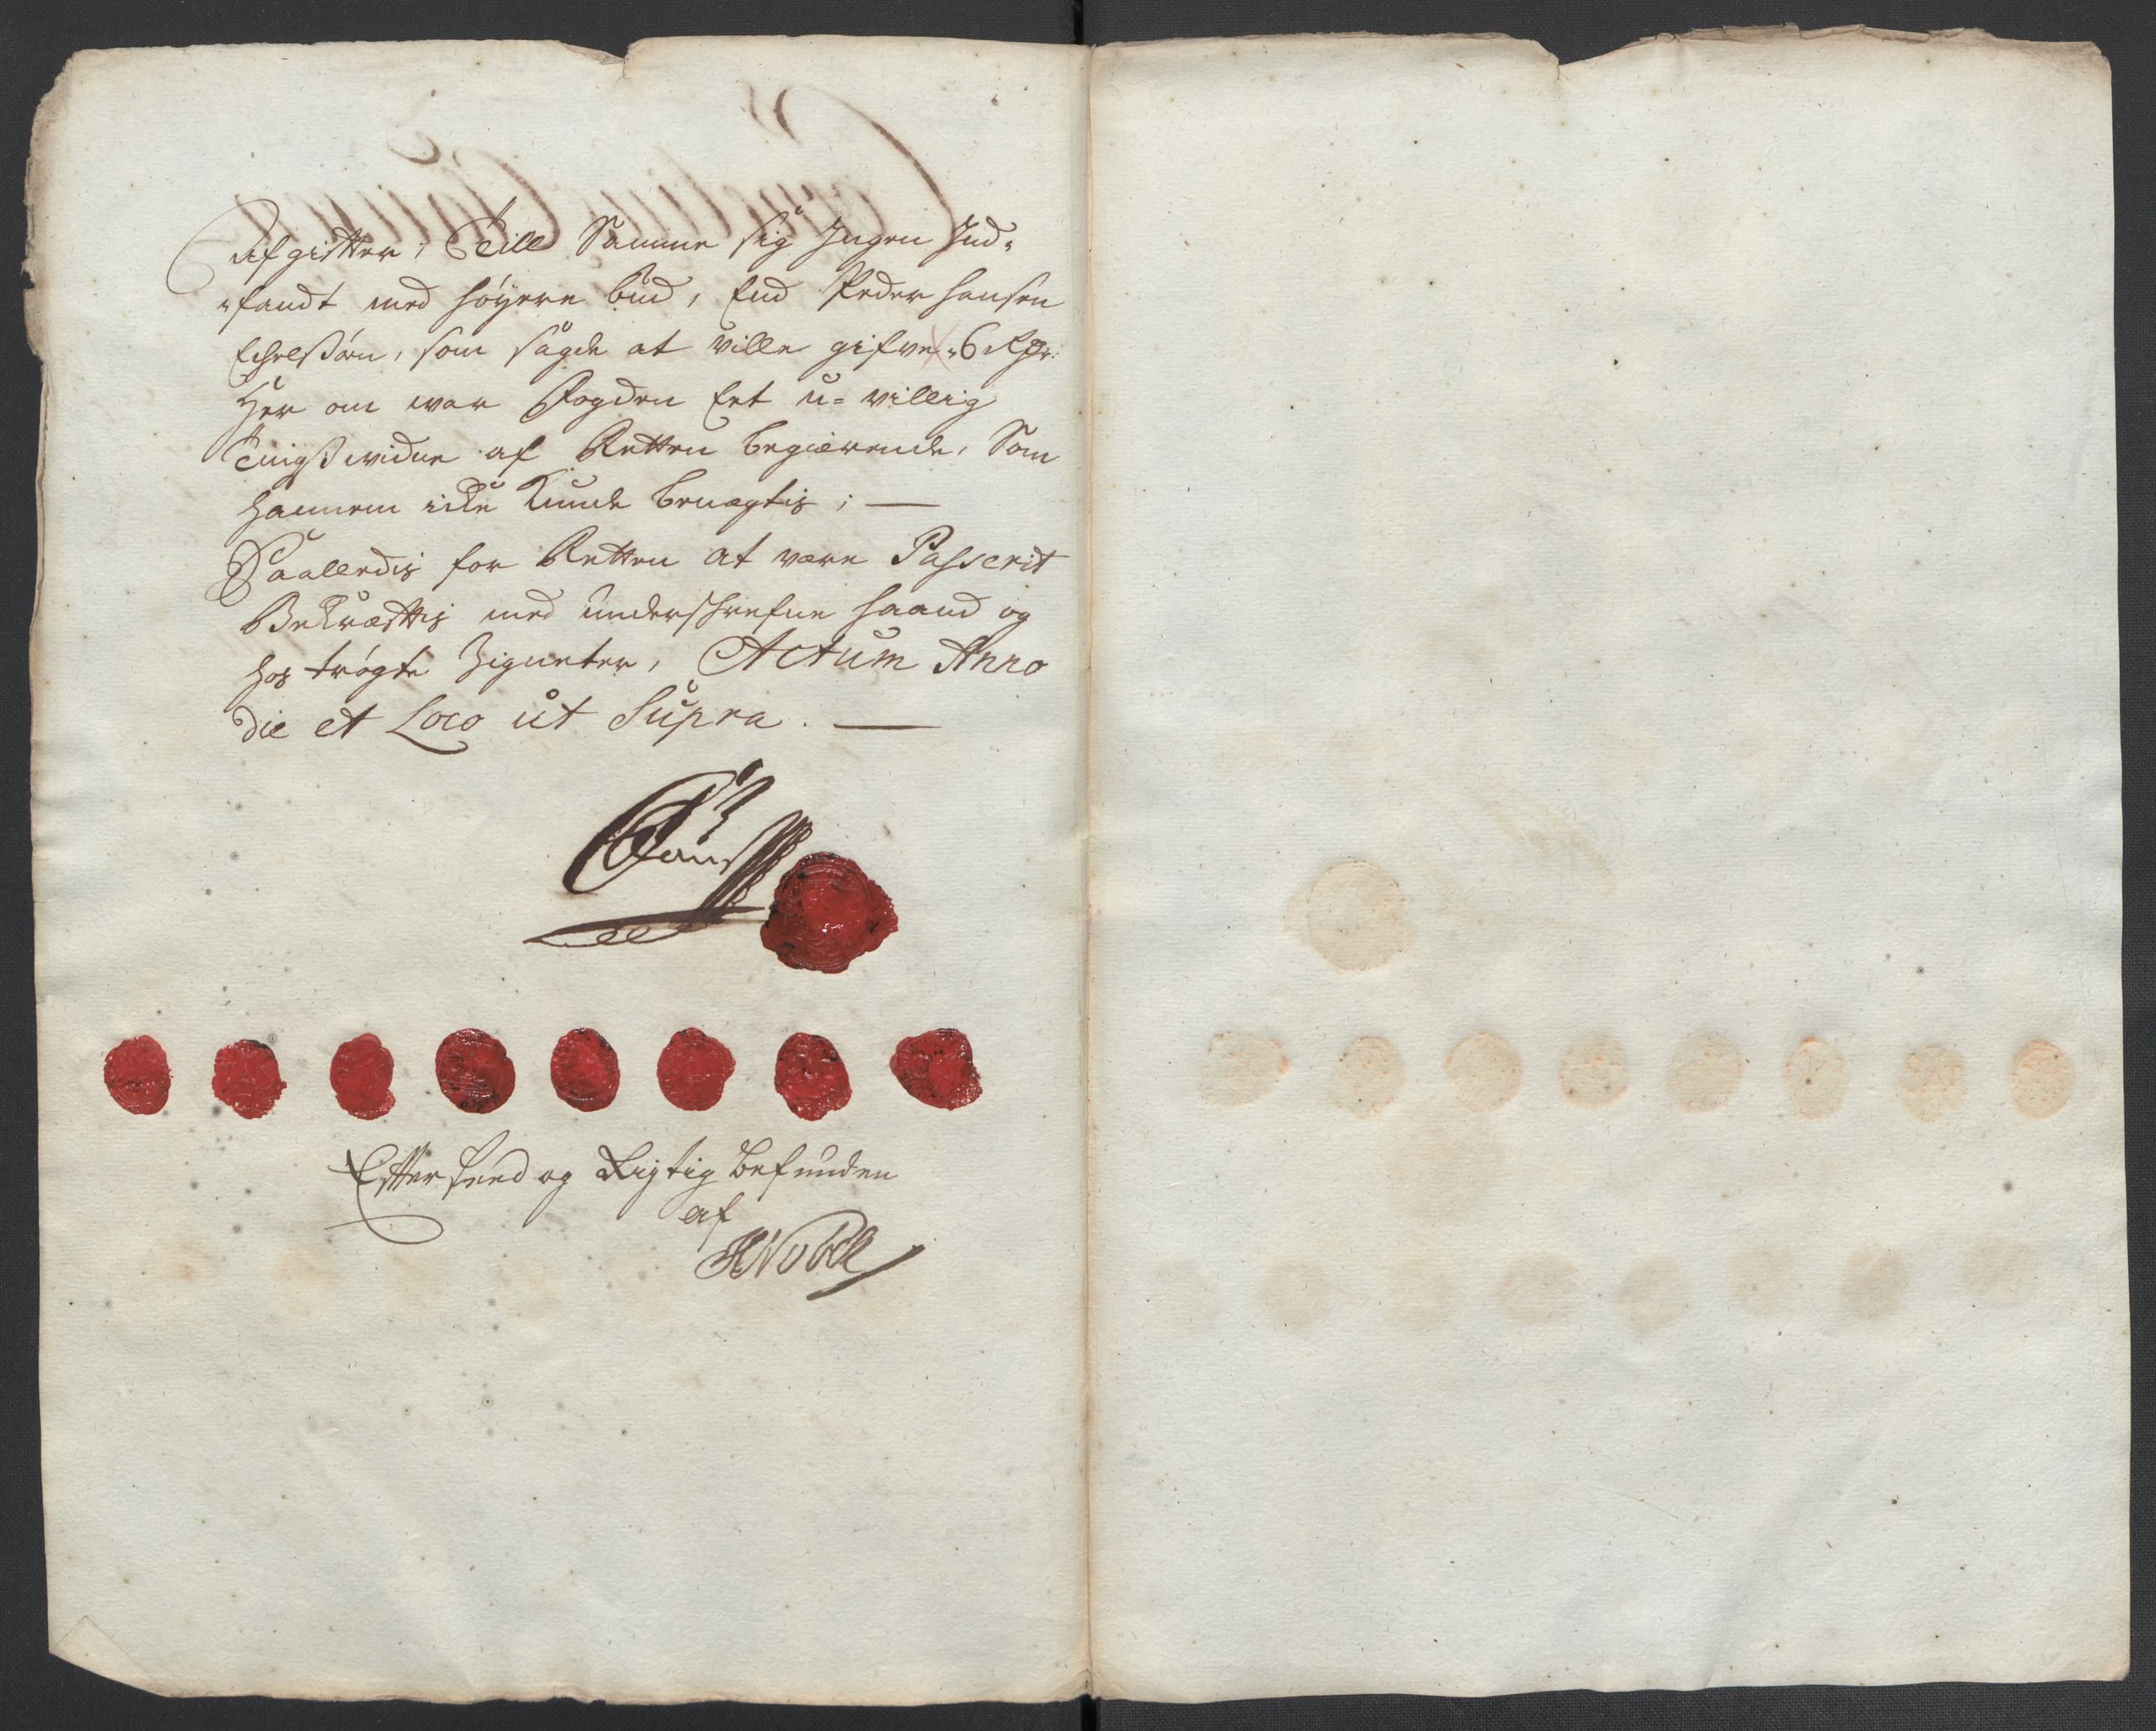 Afgifter, Till Samme sig Ingen Ind-
-fandt med høyere bud, End Peder Hansen
som sagde at ville gifve 6 Rdr.
Her om war Fogden Eet u-villig
Tingswidne af Retten begierende, Som
hannem icke Kunde benægtis; —
Saaledis for Retten at være Passerit
Bekræfftis med underschrefne haand og
hos trøgte Zigneter, Actum Anno
die et Loco ut Supra. —
Effterseed og Rigtig befunden
af